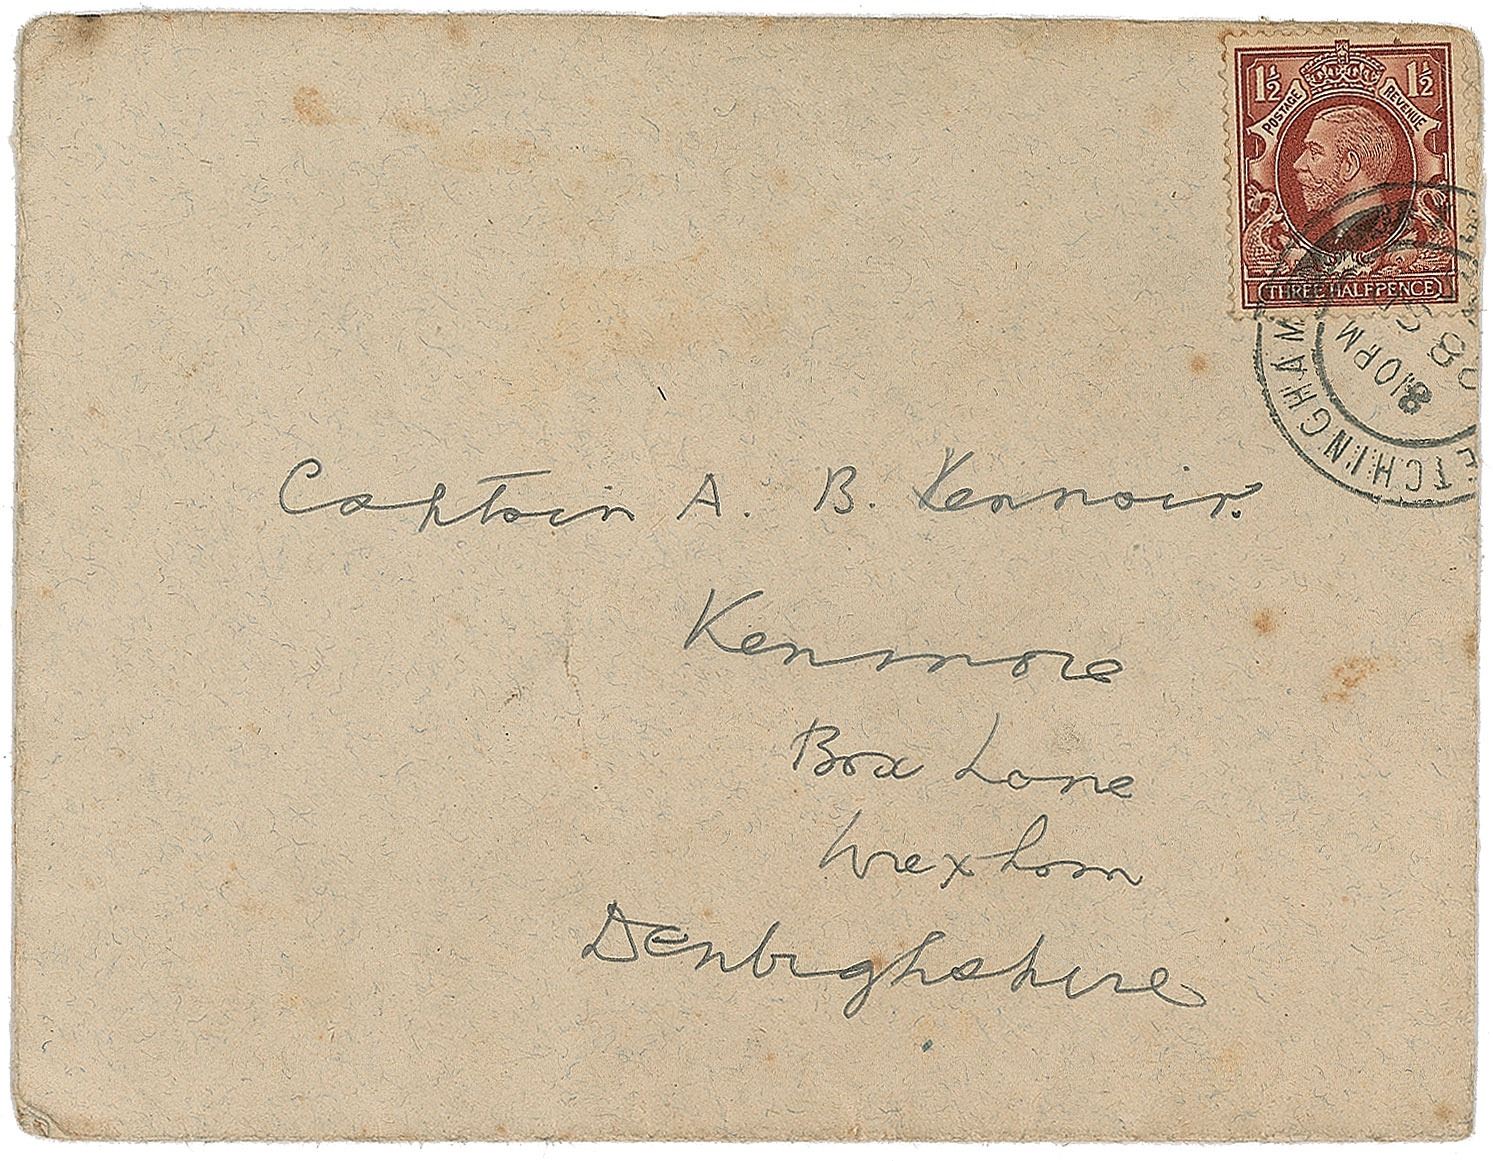 1½ 1½
POSTAGE REVENUE
THREE HALFPENCE
ETCHINGHAM
8 10 PM
8
Captain A. B. Kennoir.
Kenmore
Box Lane
Wrexham
Denbighshire